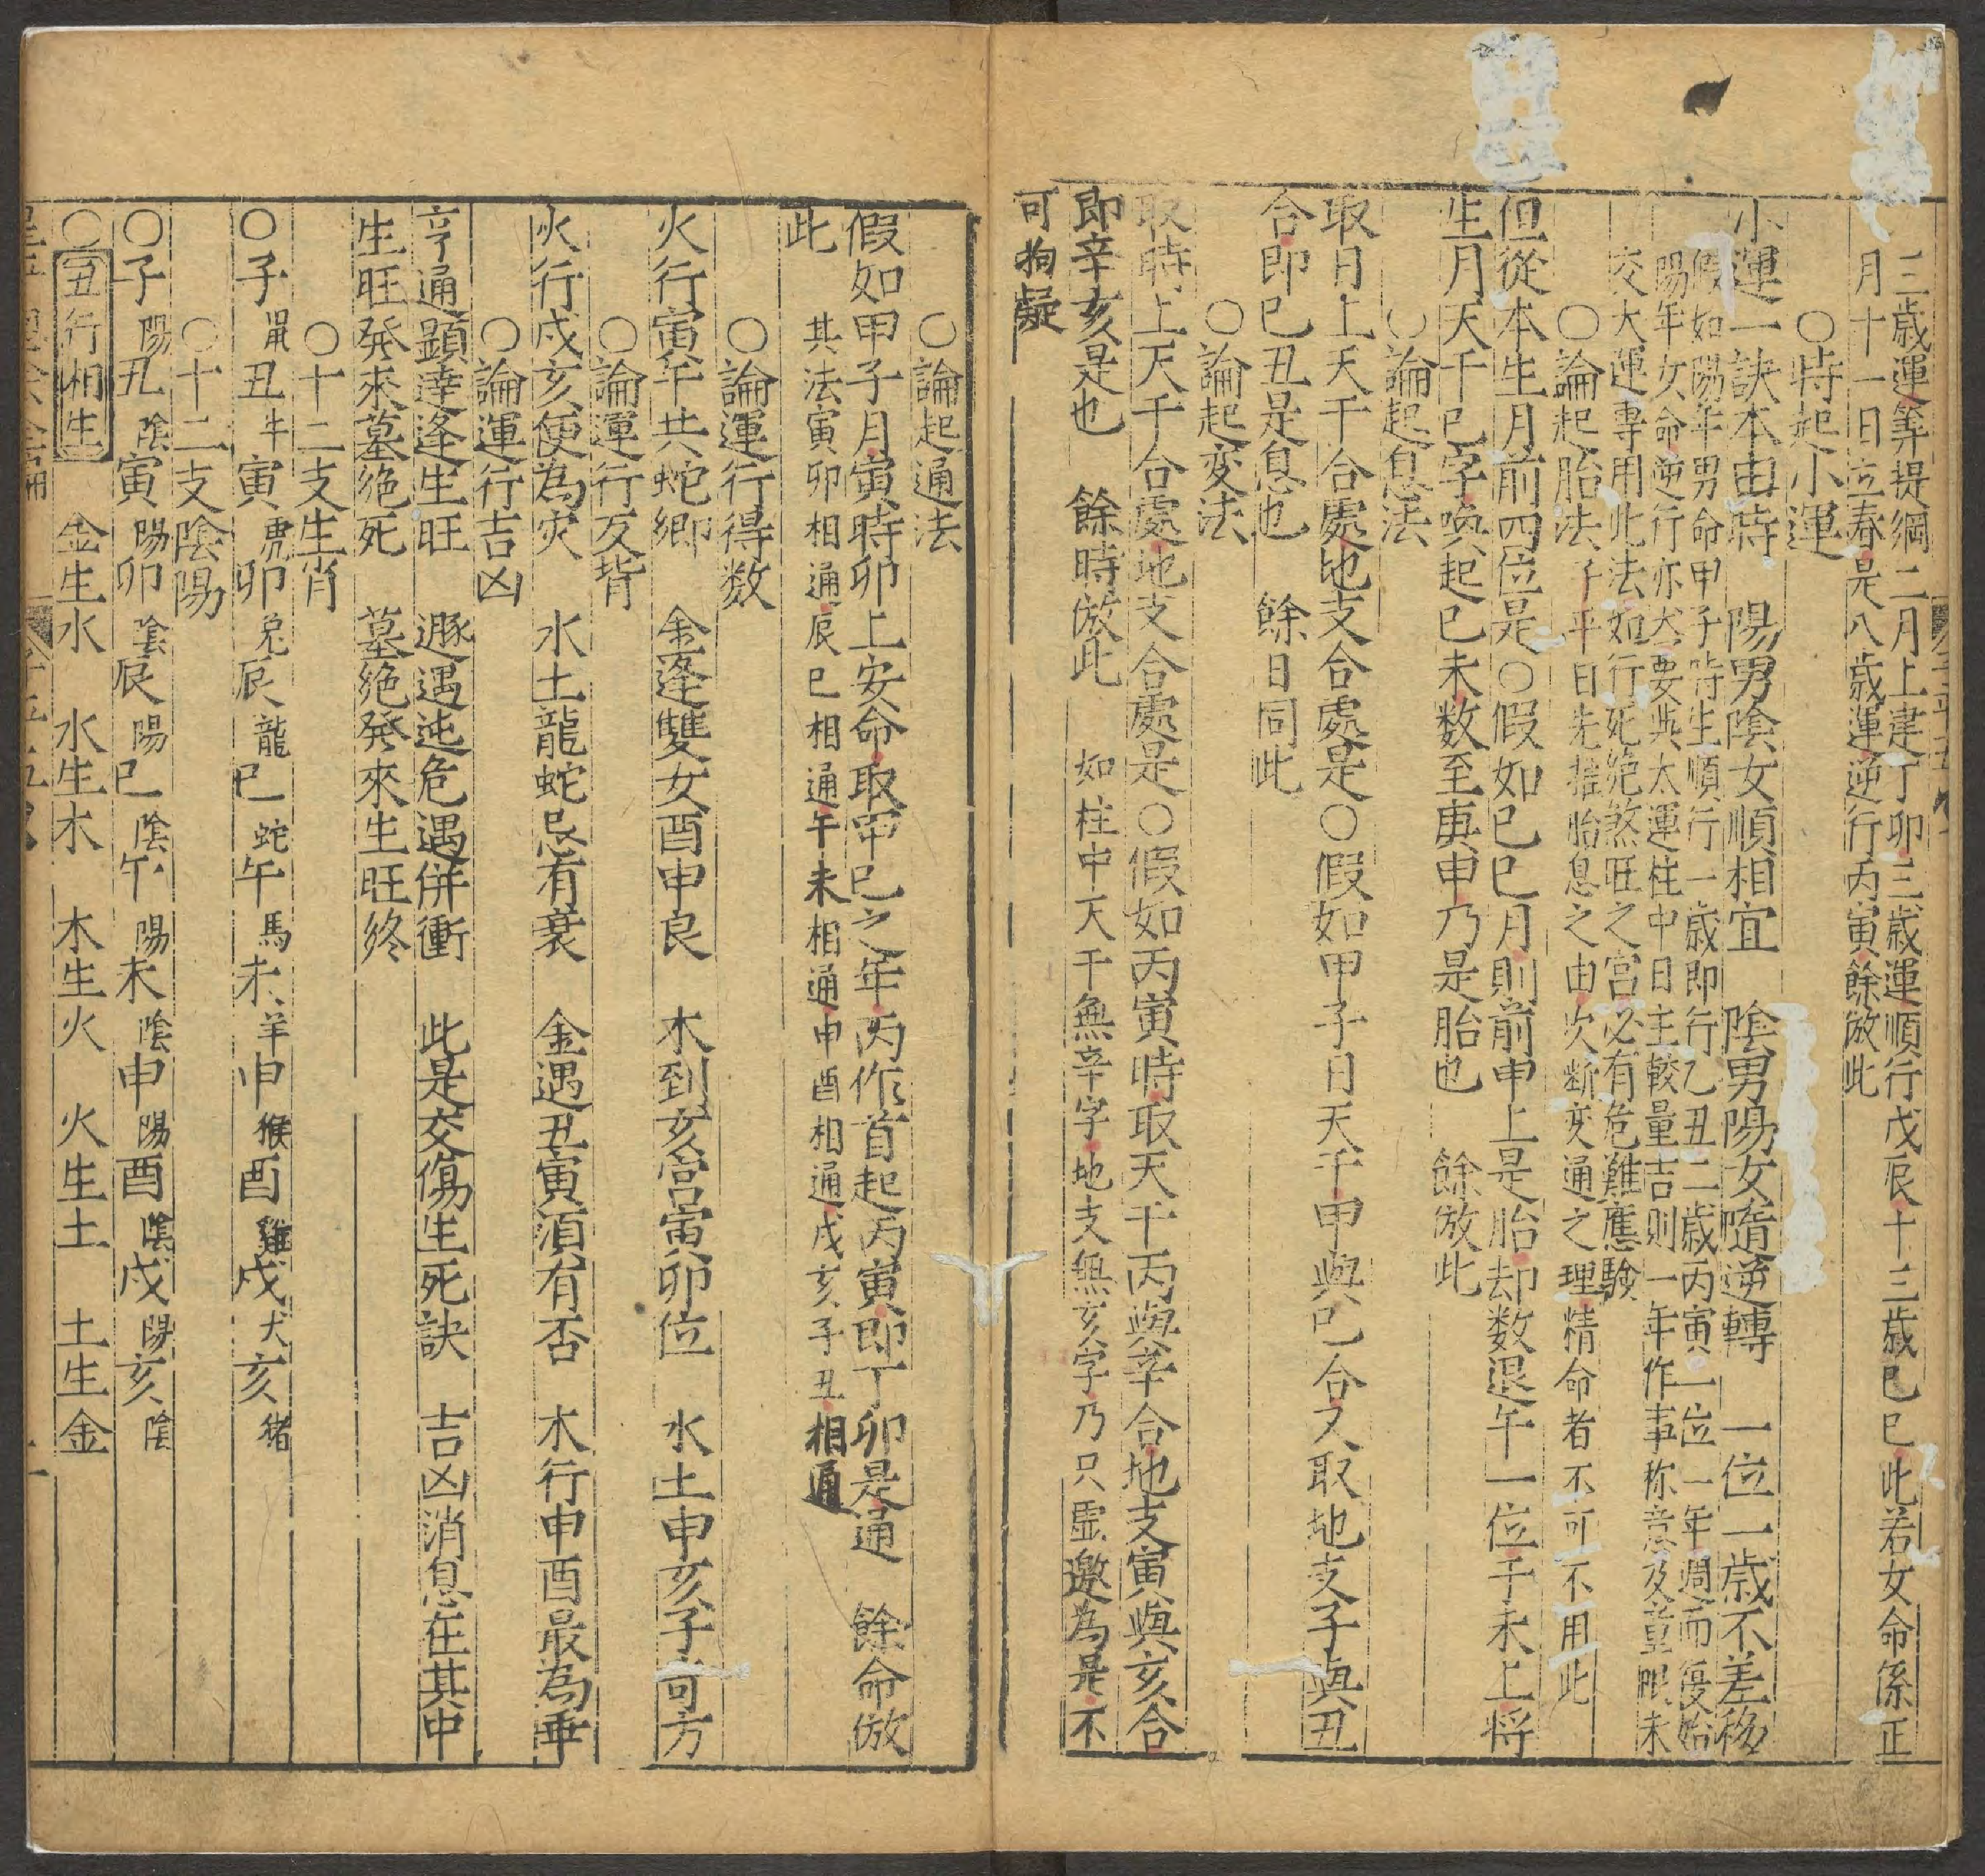 三歲運筭提綱二月上建丁卯三歲運順行戊辰十三歲己巳此若女命係正
月十一日立春是八歲運逆行丙寅餘倣此
○時起小運
小運一訣本由時 陽男陰女順相宜 陰男陽女隨逆轉 一位一歲不差移
假如陽年男命甲子時生順行一歲即行乙丑二歲丙寅一位一年週而復始
陽年女命逆行亦然要與太運柱中日主較量吉則一年作事称意及童限未
交大運專用此法如行死絕煞旺之宮必有危難應驗
○論起胎法 子平曰先推胎息之由次断变通之理精命者不可不用此
但從本生月前四位是○假如己巳月則前申上是胎却数退午一位于未上将
生月天干己字喚起己未数至庚申乃是胎也 餘倣此
○論起息法
取日上天干合處地支合處是○假如甲子日天干甲與己合又取地支子與丑
合即己丑是息也 餘日同此
○論起変法
取時上天干合處地支合處是○假如丙寅時取天干丙與辛合地支寅與亥合
即辛亥是也 餘時倣此 如柱中天干無辛字地支無亥字乃只虛邀為是不
可狥疑
○論起通法
假如甲子月寅時卯上安命取甲己之年丙作首起丙寅即丁卯是通 餘命倣
此 其法寅卯相通辰巳相通午未相通申酉相通戌亥子丑相通
○論運行得数
火行寅午共蛇鄉 金逢雙女酉申良 木到亥宮寅卯位 水土申亥子可方
○論運行反背
火行戌亥便為灾 水土龍蛇忌有衰 金遇丑寅須有否 木行申酉最為乖
○論運行吉凶
亨通顕達逢生旺 遯遇迍危遇併衝 此是交傷生死訣 吉凶消息在其中
生旺發來墓絕死 墓絕發來生旺終
○十二支生肖
○子鼠丑牛寅虎卯兔辰龍巳蛇午馬未羊申猴酉雞戌犬亥猪
○十二支陰陽
○子陽丑陰寅陽卯陰辰陽巳陰午陽未陰申陽酉陰戌陽亥陰
○五行相生 金生水 水生木 木生火 火生土 土生金